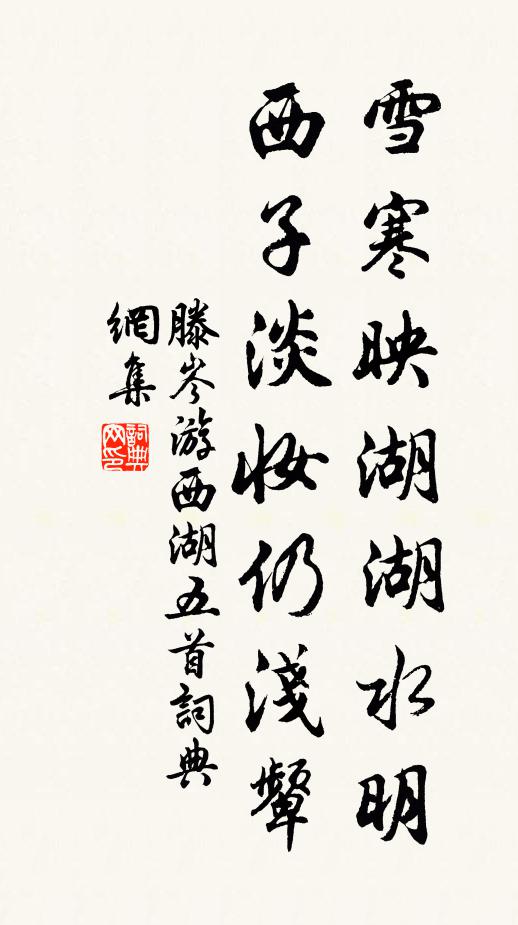 雪寒映湖湖水明
西子淡妝仍淺顰
滕岑游西湖五首詞典
網集
詞典網印